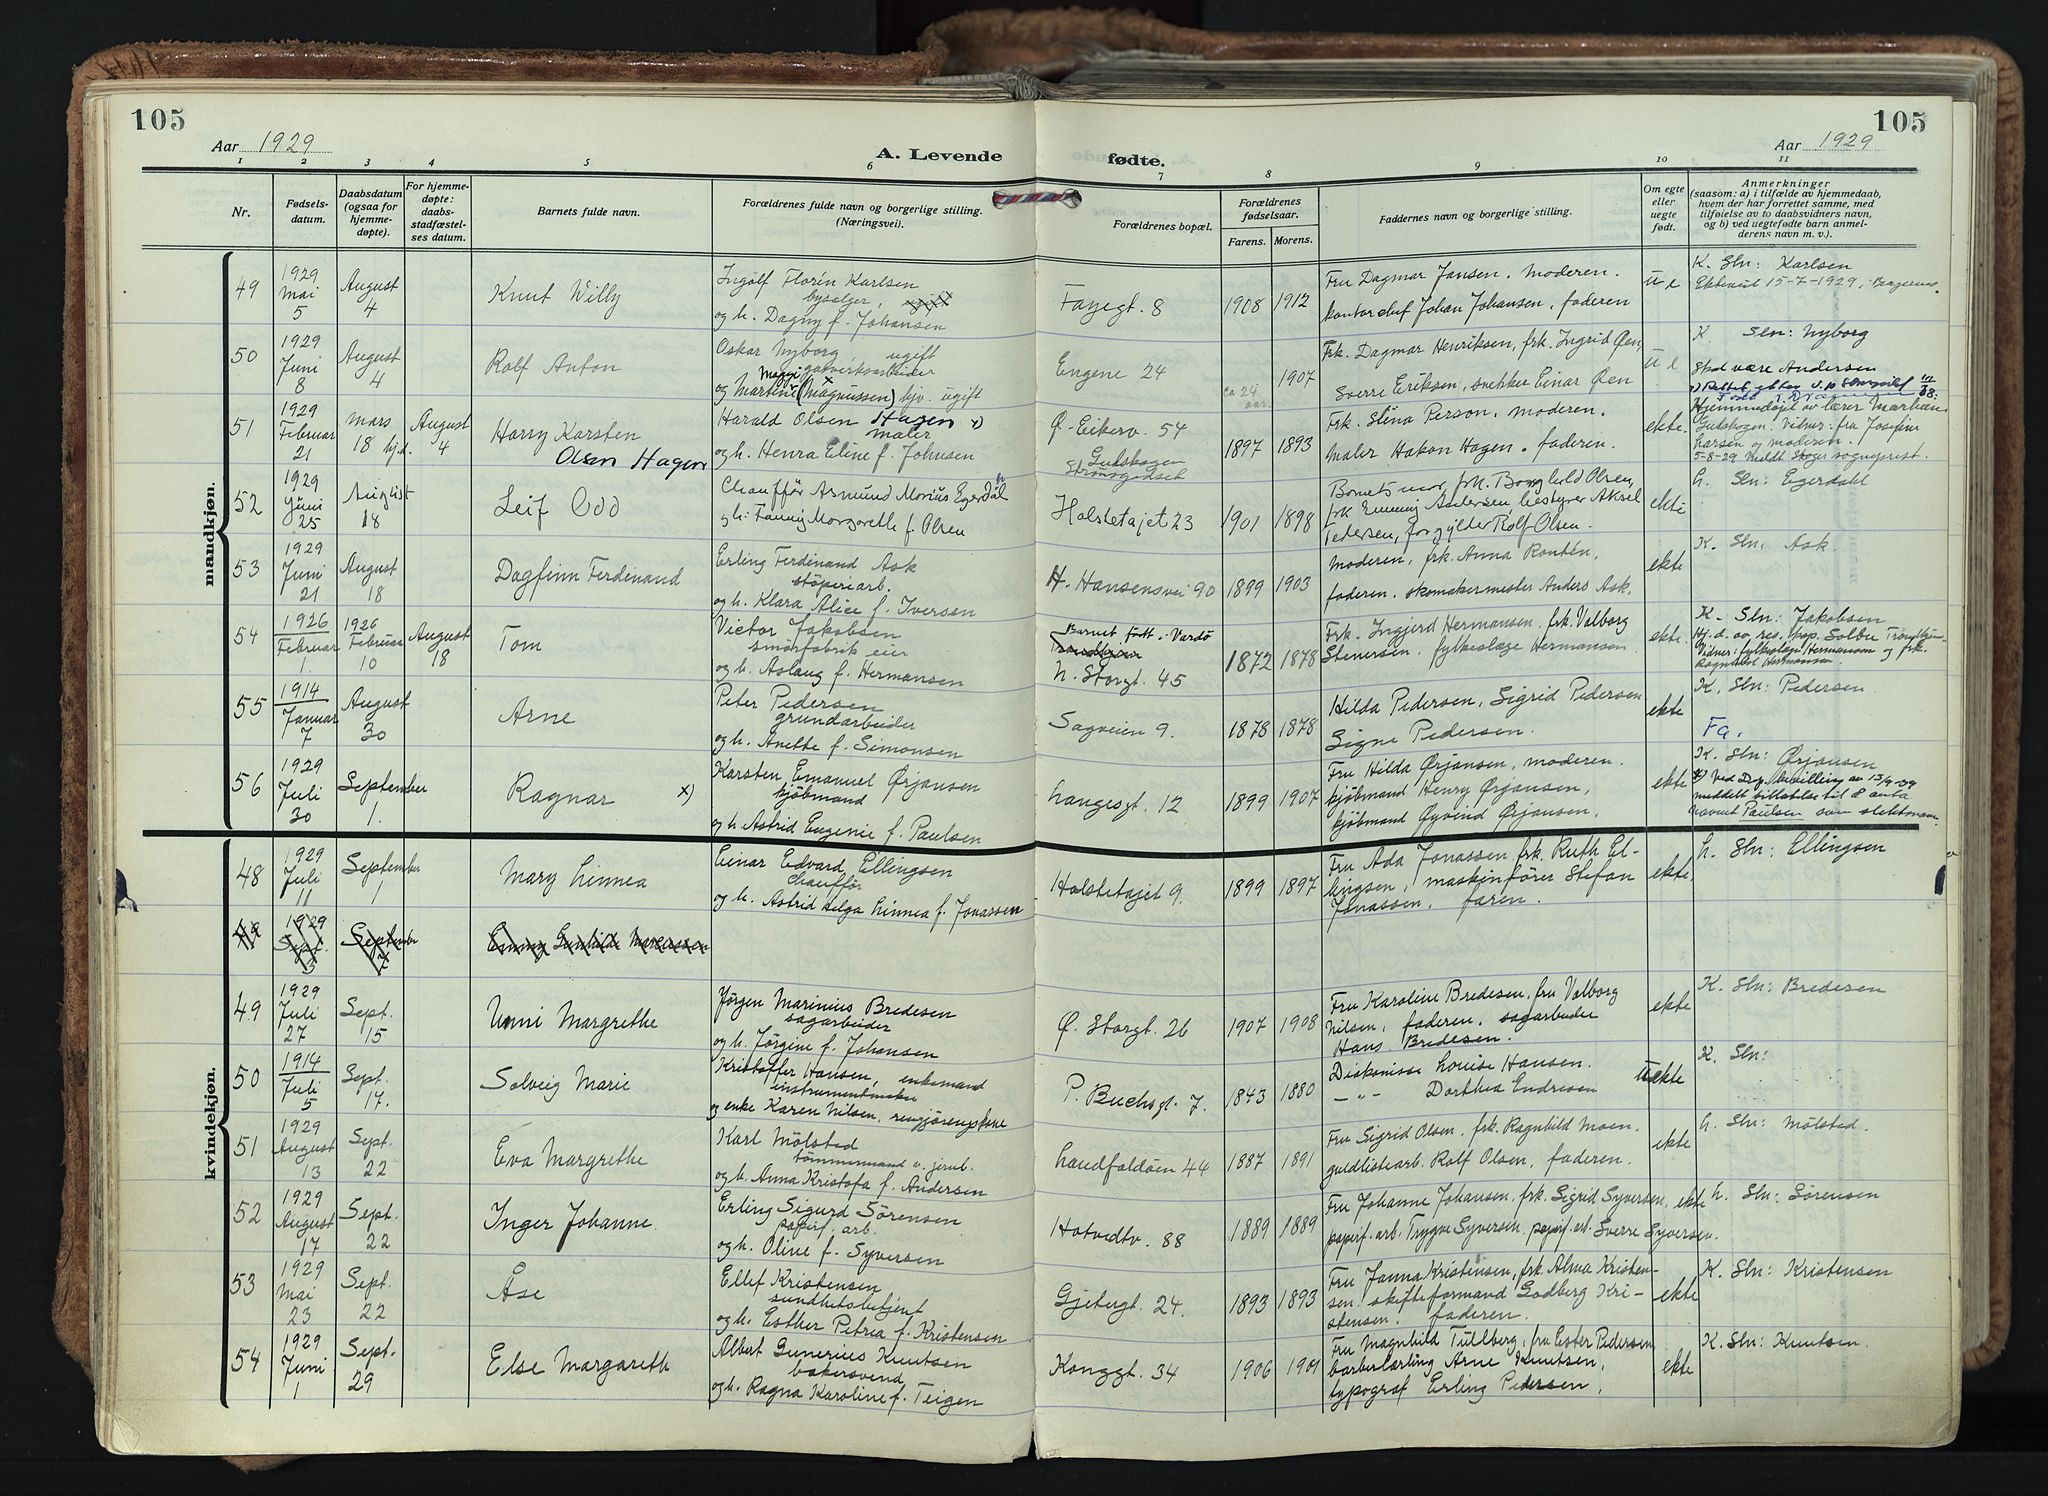 105
105
Aar 1929
A. Levende fødte.
Aar 1929
1 2 3 4 5 6 7 8 9 10 11
Nr.
Fødsels-
datum.
Daabsdatum
(ogsaa for
hjemme-
døpte).
For hjemme-
døpte:
daabs-
stadfæstel-
ses datum.
Barnets fulde navn.
Forældrenes fulde navn og borgerlige stilling.
(Næringsvei).
Forældrenes bopæl.
Forældrenes
fødselsaar.
Farens. Morens.
Faddernes navn og borgerlige stilling.
Om egte
eller
uegte
født.
Anmerkninger
(saasom: a) i tilfælde av hjemmedaab,
hvem der har forrettet samme, med
tilføielse av to daabsvidners navn,
og b) ved uegtefødte barn anmel-
derens navn m. v.).
mandkjøn.
49
1929
Mai
5
August
4
Knut Willy
Ingolf Florén Karlsen
bysælger,
og h. Dagny f. Johansen
Fayegt. 8
1908 1912
Fru Dagmar Jansen. moderen.
kontorchef Johan Johansen, faderen
u e
K. Sln: Karlsen
Ektevut 15-7-1929, Bragernes.
50
1929
Juni
8
August
4
Rolf Anton
Oskar Nyborg, ugift
gatverksarbeider
og Martine (Magnussen) hjv. ugift
Engene 24
ca 29
aar.
1907
Frk. Dagmar Henriksen, frk. Ingrid Øen,
Sverre Eriksen, snekker Einar Øen
u e
K. Sln: Nyborg
Skal være Andersen
51
1929
Februar
21
mars
18 hjd.
August
4
Harry Karsten
Olsen Hagen
Harald Olsen Hagen x)
maler
og h. Henra Eline f. Johnsen
Ø. Eikerv. 54
Gulskogen
Strømsgodset
1897 1893
Frk. Stina Person, moderen.
maler Håkon Hagen. faderen.
ekte.
Hjemmedøpt av lærer Marhaug
Gulskogen. Vitner: fra Josefine
Larsen og moderen.
5-8-29 meldt Skoger sogneprest.
52
1929
Juni
25
August
18
Leif Odd
Chauffør Asmund Marius Egerdal
og h: Fanny Margarethe f. Olsen
Holstetajet 23
1901 1898
Barnets mor, frk. Borghild Olsen,
frk Emmy Andersen, bestyrer Aksel
Pedersen, forgylder Rolf Olsen.
ekte
L. Sln: Egerdahl
53
1929
Juni
21
August
18
Dagfinn Ferdinand
Erling Ferdinand Ask
støperiarb.
og h. Klara Alice f. Iversen
H. Hansensvei 90
1899 1903
moderen, frk. Anna Rontén,
faderen. skomakermester Anders Ask.
ekte
K. Sln: Ask.
54
1926
Februar
1.
1926
Februar
10
August
18
Tom
Victor Jakobsen
smørfabrik eier
og h. Aslaug f. Hermansen
Barnet født i Vardø
N. Storgt. 45
1872 1878
Frk. Ingjerd Hermansen, frk. Valborg
Stenersen. fylkeslæge Hermansen
ekte.
K. Sln: Jakobsen
Hj. d. av res. kap. Solbu
Vidner: fylkeslæge Hermansen og frk.
Ragnhild Hermansen.
55
1914
Januar
7
August
30
Arne
Peter Pedersen
grundarbeider
og h. Anette f. Simonsen
Sagveien 9.
1878 1878
Hilda Pedersen, Sigrid Pedersen
Signe Pedersen.
ekte
K. Sln: Pedersen.
Fa.
56
1929
Juli
30
September
1.
Ragnar x)
Karsten Emanuel Ørjansen
kjøbmand
og h. Astrid Eugenie f. Paulsen
Langesgt. 12
1899 1907
Fru Hilda Ørjansen, moderen.
kjøbmand Henry Ørjansen,
kjøbmand Øyvind Ørjansen.
ekte
K. Sln: Ørjansen
x) Ved Dep. bevilling av 13/9-39
meddelt tillatelse til å anta
navnet Paulsen som slektsnavn.
kvindekjøn.
48
1929
Juli
11
September
1
Mary Linnea
Einar Edvard Ellingsen
Chauffør
og h. Astrid Helga Linnea f. Jonassen
Holstetajet 9.
1899 1897
Fru Ada Jonassen, frk. Ruth El-
lingsen, maskinfører Stefan
Jonassen, faren.
ekte.
L. Sln: Ellingsen
1929
Sept.
3
September
Emmy Gunhilde
49
1929
Juli
27
Sept.
15
Unni Margrethe
Jørgen Marinius Bredesen
sagarbeider
og h. Jørgine f. Johansen
Ø. Storgt. 26
1907 1908
Fru Karoline Bredesen, fru Valborg
Nilsen, faderen, sagarbeider
Hans Bredesen.
ekte
K. Sln: Bredesen
50
1914
Juli
5
Sept.
17.
Solveig Marie
Kristoffer Hansen, enkemand
instrumentmaker
og enke Karen Nilsen, rengjøringskone
P. Buchsgt. 7.
1843 1880
Diakonisse Louise Hansen.
— „ — Dorthea Endresen
uekte
K. Sln:
51
1929
August
13
Sept.
22
Eva Margrethe
Karl Mölsted
tømmermand v. jernb.
og h. Anna Kristofa f. Andersen
Landfaldøen 44
1887 1891
Fru Sigrid Olsen, frk. Ragnhild Moen.
guldlistearb. Rolf Olsen, faderen.
ekte
L. Sln: Mölsted.
52
1929
August
17
Sept.
22
Inger Johanne.
Erling Sigurd Sörensen
papirf. arb.
og h. Oline f. Syversen
Hotvedtv. 88
1889 1889
Fru Johanne Johansen, frk. Sigrid Syversen,
papirf. arb. Trygve Syversen. papirf. arb. Sverre Syversen.
ekte
L. Sln: Sörensen
53
1929
Mai
23
Sept.
22
Åse
Ellef Kristensen
sundhetsbetjent
og h. Esther Petrea f. Kristensen
Gjetergt. 24.
1893 1893
Fru Janna Kristensen, frk. Alma Kristen-
sen. skifteformand Godberg Kri-
stensen. faderen.
ekte
K. Sln: Kristensen
54
1929
Juni
1
Sept.
29
Else Margarethe
Albert Gunerius Knutsen
bakersvend
og h. Ragna Karoline f. Teigen
Konggt. 34
1906 1901
Fru Magnhild Tullberg, fru Ester Pedersen
barberlærling Arne Knutsen,
typograf Erling Pedersen,
ekte
K. Sln: Knutsen.